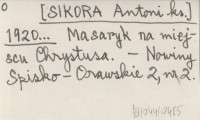 o
[SIKORA Antoni ks.]
1920... Masaryk na miej-
scu Chrystusa. – Nowiny
Spisko – Orawskie 2, nr 2.